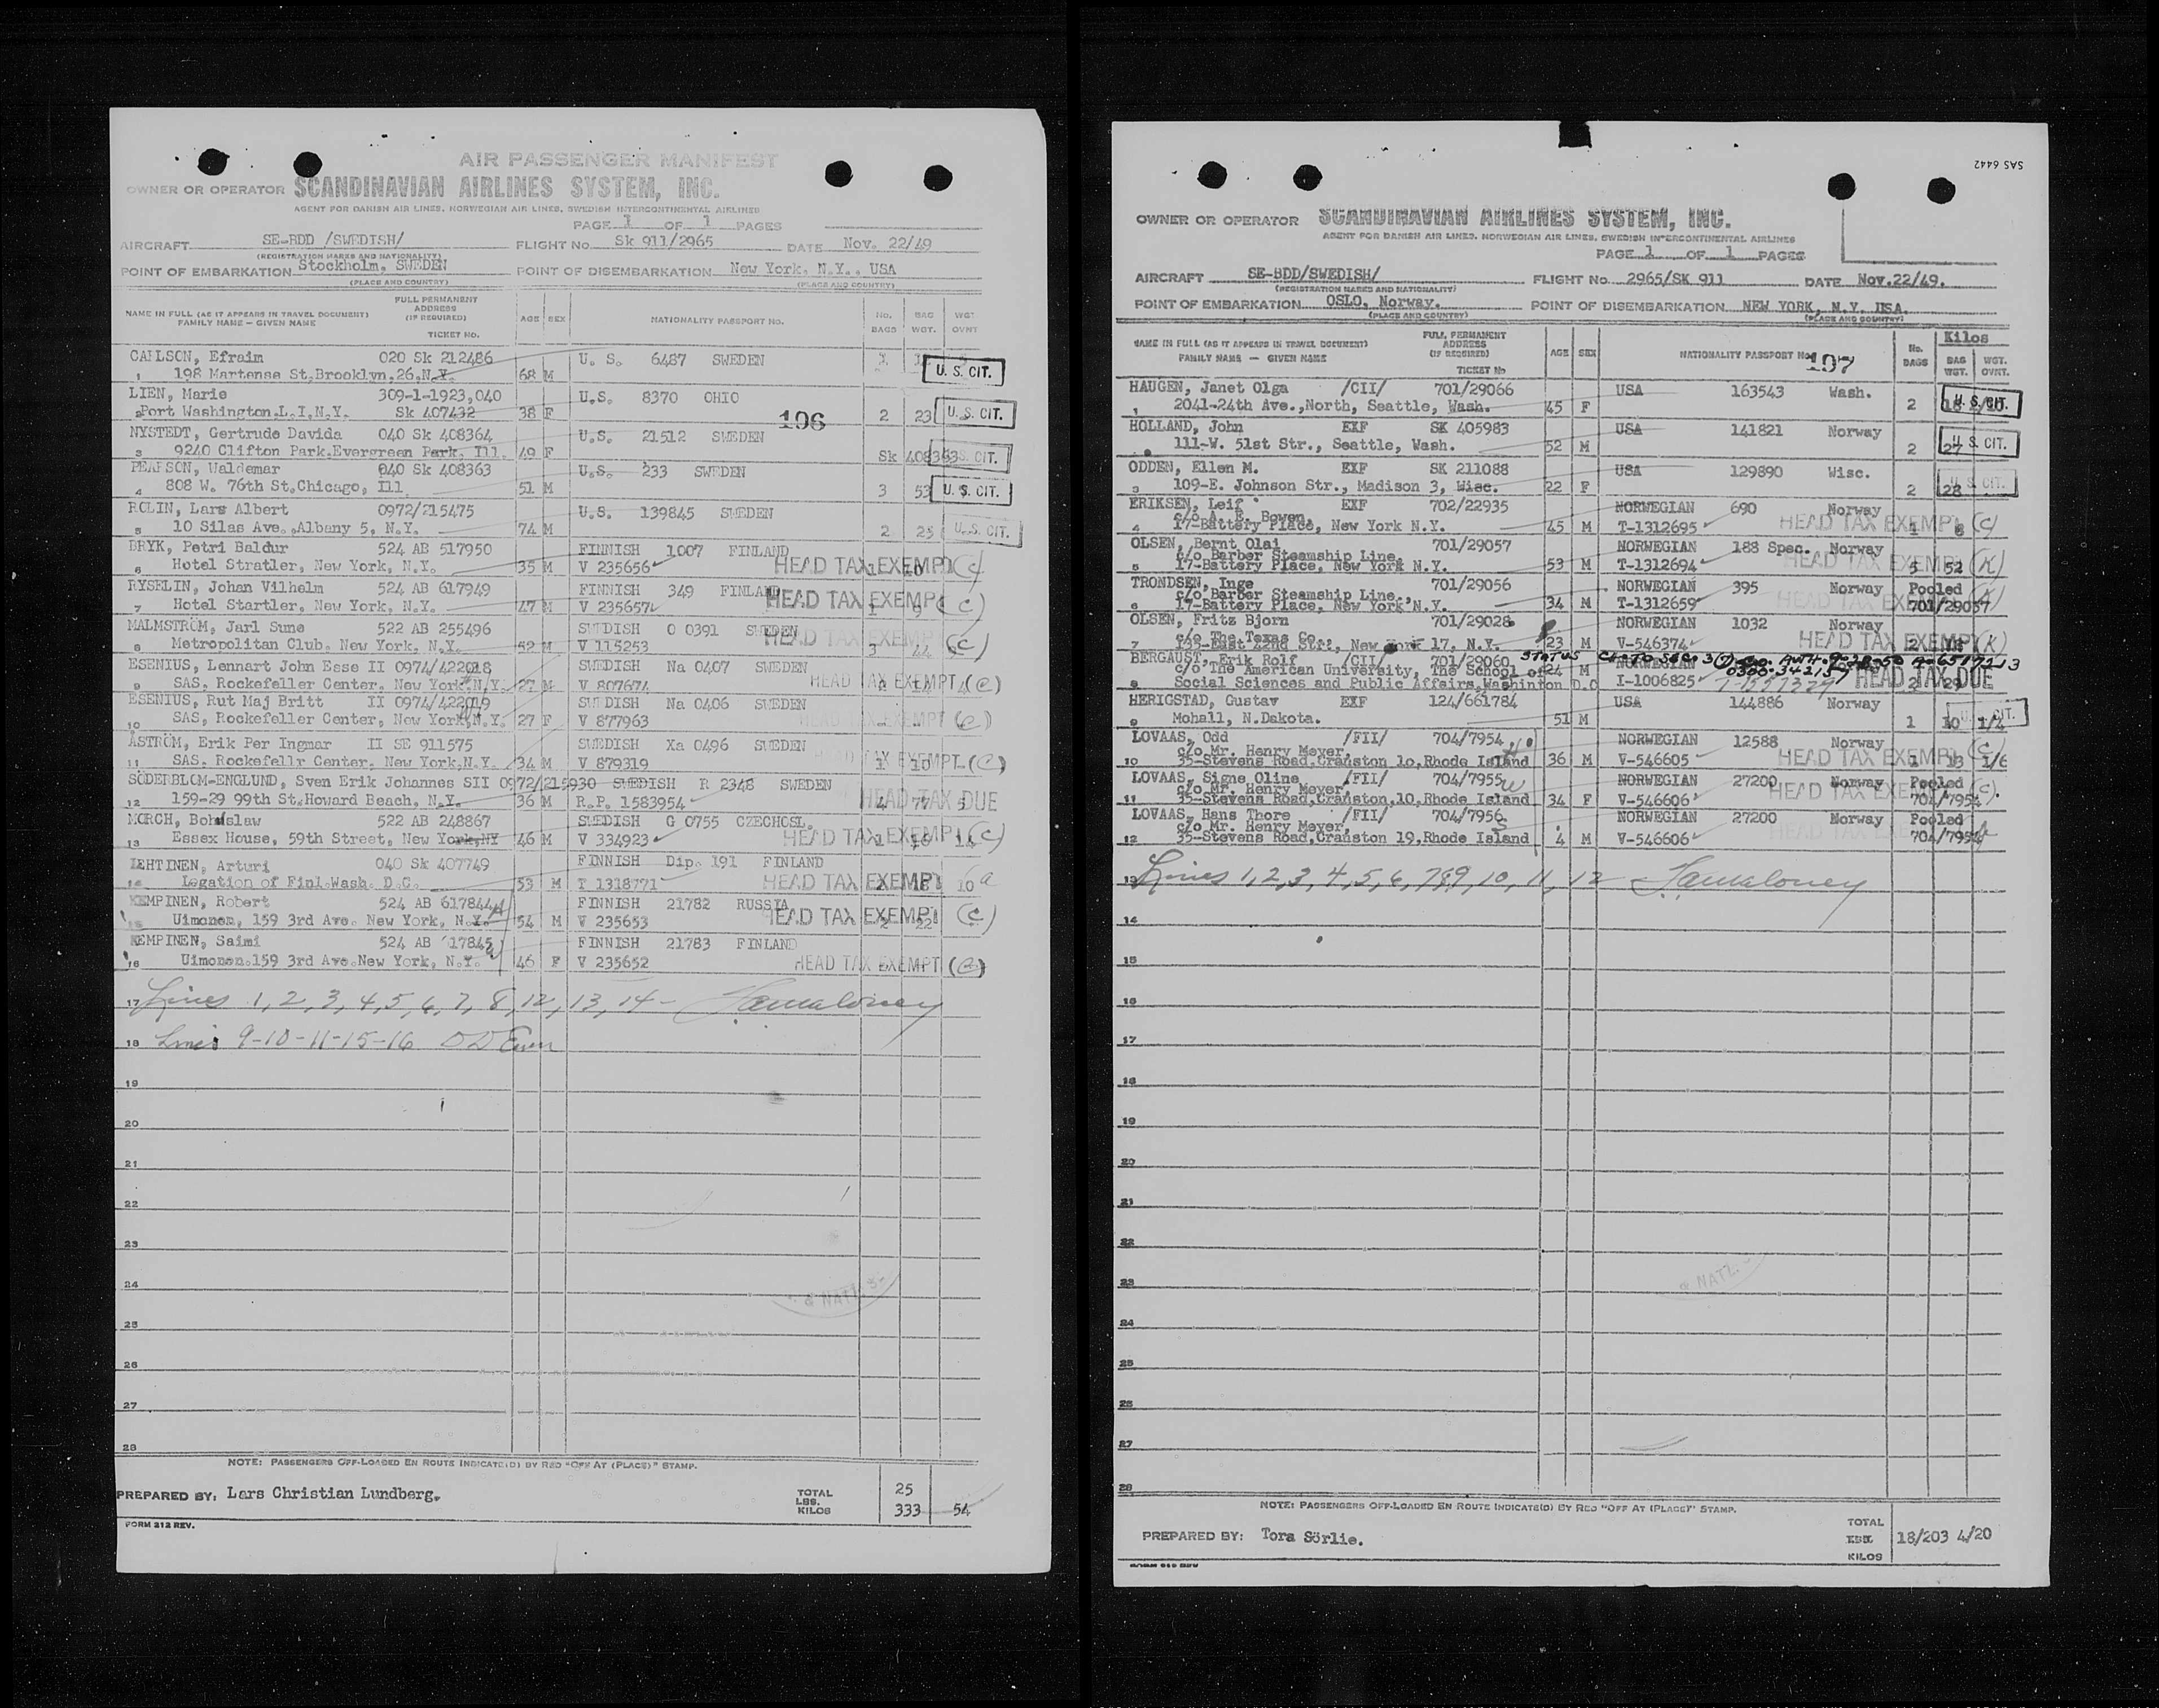 AIR PASSENGER MANIFEST
OWNER OR OPERATOR SCANDINAVIAN AIRLINES SYSTEM, INC.
AGENT FOR DANISH AIR LINES, NORWEGIAN AIR LINES, SWEDISH INTERCONTINENTAL AIRLINES
PAGE 1 OF 1 PAGES
AIRCRAFT SE-BDD /SWEDISH/ FLIGHT No. Sk 911/2965 DATE Nov. 22/49
(REGISTRATION MARKS AND NATIONALITY)
POINT OF EMBARKATION Stockholm, SWEDEN POINT OF DISEMBARKATION New York, N.Y., USA
(PLACE AND COUNTRY) (PLACE AND COUNTRY)
NAME IN FULL (AS IT APPEARS IN TRAVEL DOCUMENT) FAMILY NAME — GIVEN NAME FULL PERMANENT ADDRESS (IF REQUIRED) TICKET No. AGE SEX NATIONALITY PASSPORT NO. No. BAGS BAG WGT. WGT OVNT
CARLSON, Efraim 020 Sk 212486 U. S. 6487 SWEDEN
1 198 Martense St,Brooklyn,26,N.Y. 68 M U. S. CIT.
LIEN, Marie 309-1-1923,040 U.S. 8370 OHIO
2 Port Washington,L.I,N.Y. Sk 407432 38 F 196 2 23 U. S. CIT.
NYSTEDT, Gertrude Davida 040 Sk 408364 U.S. 21512 SWEDEN
3 9240 Clifton Park.Evergreen Park, Ill. 49 F Sk 408363 S. CIT.
PEARSON, Waldemar 040 Sk 408363 U.S. 233 SWEDEN
4 808 W. 76th St,Chicago, Ill. 51 M 3 53 U. S. CIT.
ROLIN, Lars Albert 0972/215475 U.S. 139845 SWEDEN
5 10 Silas Ave.,Albany 5, N.Y. 74 M 2 23 U.S. CIT.
BRYK, Petri Baldur 524 AB 517950 FINNISH 1007 FINLAND
6 Hotel Stratler, New York, N.Y. 35 M V 235656 HEAD TAX EXEMPT (C)
RYSELIN, Johan Vilhelm 524 AB 617949 FINNISH 349 FINLAND
7 Hotel Startler, New York, N.Y. 47 M V 235657 HEAD TAX EXEMPT (C)
MALMSTRÖM, Jarl Sune 522 AB 255496 SWEDISH O 0391 SWEDEN
8 Metropolitan Club. New York, N.Y. 52 M V 115253 HEAD TAX EXEMPT 3 44 (C)
ESENIUS, Lennart John Esse II 0974/422018 SWEDISH Na 0407 SWEDEN
9 SAS, Rockefeller Center, New York,N.Y. 27 M V 807674 HEAD TAX EXEMPT (C)
ESENIUS, Rut Maj Britt II 0974/422019 SWEDISH Na 0406 SWEDEN
10 SAS, Rockefeller Center, New York,N.Y. 27 F V 877963 HEAD TAX EXEMPT (C)
ÅSTRÖM, Erik Per Ingmar II SE 911575 SWEDISH Xa 0496 SWEDEN
11 SAS, Rockefellr Center, New York,N.Y. 34 M V 879319 HEAD TAX EXEMPT (C)
SÖDERBLOM-ENGLUND, Sven Erik Johannes SII 0972/215930 SWEDISH R 2348 SWEDEN
12 159-29 99th St,Howard Beach, N.Y. 36 M R.P. 1583954 HEAD TAX DUE 4 77 5
MORCH, Bohuslaw 522 AB 248867 SWEDISH G 0755 CZECHOSL.
13 Essex House, 59th Street, New York,NY 46 M V 334923 HEAD TAX EXEMPT (C)
LEHTINEN, Arturi 040 Sk 407749 FINNISH Dip. 191 FINLAND
14 Legation of Finl.Wash. D.C. 53 M T 1318771 HEAD TAX EXEMPT 2 18 10 a
KEMPINEN, Robert 524 AB 617844 FINNISH 21782 RUSSIA
15 Uimonen, 159 3rd Ave. New York, N.Y. 54 M V 235653 HEAD TAX EXEMPT 2 22 (C)
KEMPINEN, Saimi 524 AB 617845 FINNISH 21783 FINLAND
16 Uimonen.159 3rd Ave.New York, N.Y. 46 F V 235652 HEAD TAX EXEMPT (C)
17 Lines 1,2,3,4,5,6,7,8,12,13,14-
18 Lines 9-10-11-15-16
19
20
21
22
23
24
25
26
27
28
NOTE: PASSENGERS OFF-LOADED EN ROUTE INDICATE(D) BY RED "OFF AT (PLACE)" STAMP.
PREPARED BY: Lars Christian Lundberg. TOTAL LBS. KILOS 25 333 54
FORM 212 REV.
SAS 6442
OWNER OR OPERATOR SCANDINAVIAN AIRLINES SYSTEM, INC.
AGENT FOR DANISH AIR LINES, NORWEGIAN AIR LINES, SWEDISH INTERCONTINENTAL AIRLINES
PAGE 1 OF 1 PAGES
AIRCRAFT SE-BDD/SWEDISH/ FLIGHT No. 2965/SK 911 DATE Nov.22/49.
(REGISTRATION MARKS AND NATIONALITY)
POINT OF EMBARKATION OSLO, Norway. POINT OF DISEMBARKATION NEW YORK, N.Y. USA.
(PLACE AND COUNTRY) (PLACE AND COUNTRY)
NAME IN FULL (AS IT APPEARS IN TRAVEL DOCUMENT) FAMILY NAME — GIVEN NAME FULL PERMANENT ADDRESS (IF REQUIRED) TICKET No AGE SEX NATIONALITY PASSPORT No. 197 No. BAGS Kilos BAG WGT. WGT. OVNT.
HAUGEN, Janet Olga /CII/ 701/29066 USA 163543 Wash.
1 2041-24th Ave.,North, Seattle, Wash. 45 F 2 U. S. CIT.
HOLLAND, John EXF SK 405983 USA 141821 Norway
111-W. 51st Str., Seattle, Wash. 52 M 2 27 U. S. CIT.
ODDEN, Ellen M. EXF SK 211088 USA 129890 Wisc.
3 109-E. Johnson Str., Madison 3, Wisc. 22 F 2 28 U. S. CIT.
ERIKSEN, Leif EXF 702/22935 NORWEGIAN 690 Norway
c/o A. E. Bowen,
4 17-Battery Place, New York N.Y. 45 M T-1312695 HEAD TAX EXEMPT 1 8 (C)
OLSEN, Bernt Olai 701/29057 NORWEGIAN 188 Spec. Norway
c/o Barber Steamship Line,
5 17-Battery Place, New York N.Y. 53 M T-1312694 HEAD TAX EXEMPT 5 52 (K)
TRONDSEN, Inge 701/29056 NORWEGIAN 395 Norway Pooled
c/o Barber Steamship Line.,
6 17-Battery Place, New York N.Y. 34 M T-1312659 HEAD TAX EXEMPT 701/29057 (K)
OLSEN, Fritz Bjorn 701/29028 NORWEGIAN 1032 Norway
c/o The Texas Co.,
7 135-East 42nd Str., New York 17, N.Y. 23 M V-546374 HEAD TAX EXEMPT (K)
BERGAUST, Erik Rolf /CII/ 701/29060 NORWEGIAN
c/o The American University, The School of 24 M
8 Social Sciences and Public Affairs,Washinton D.C I-1006825 HEAD TAX DUE 2 29
HERIGSTAD, Gustav EXF 124/661784 USA 144886 Norway
9 Mohall, N.Dakota. 51 M 1 10 1/4 CIT.
LOVAAS, Odd /FII/ 704/7954 NORWEGIAN 12588 Norway
c/o Mr. Henry Meyer,
10 35-Stevens Road,Cranston 10,Rhode Island 36 M V-546605 HEAD TAX EXEMPT 13 1/6 (C)
LOVAAS, Signe Oline /FII/ 704/7955 NORWEGIAN 27200 Norway Pooled
c/o Mr. Henry Meyer,
11 35-Stevens Road,Cranston,10,Rhode Island 34 F V-546606 HEAD TAX EXEMPT 704/7954 (C)
LOVAAS, Hans Thore /FII/ 704/7956 NORWEGIAN 27200 Norway Pooled
c/o Mr. Henry Meyer,
12 35-Stevens Road,Cranston 19,Rhode Island 4 M V-546606 704/7954
13 Lines 1,2,3,4,5,6,7,8,9,10,11,12
14
15
16
17
18
19
20
21
22
23
24
25
26
27
28
NOTE: PASSENGERS OFF-LOADED EN ROUTE INDICATE(D) BY RED "OFF AT (PLACE)" STAMP.
PREPARED BY: Tora Sörlie. TOTAL KILOS 18/203 4/20